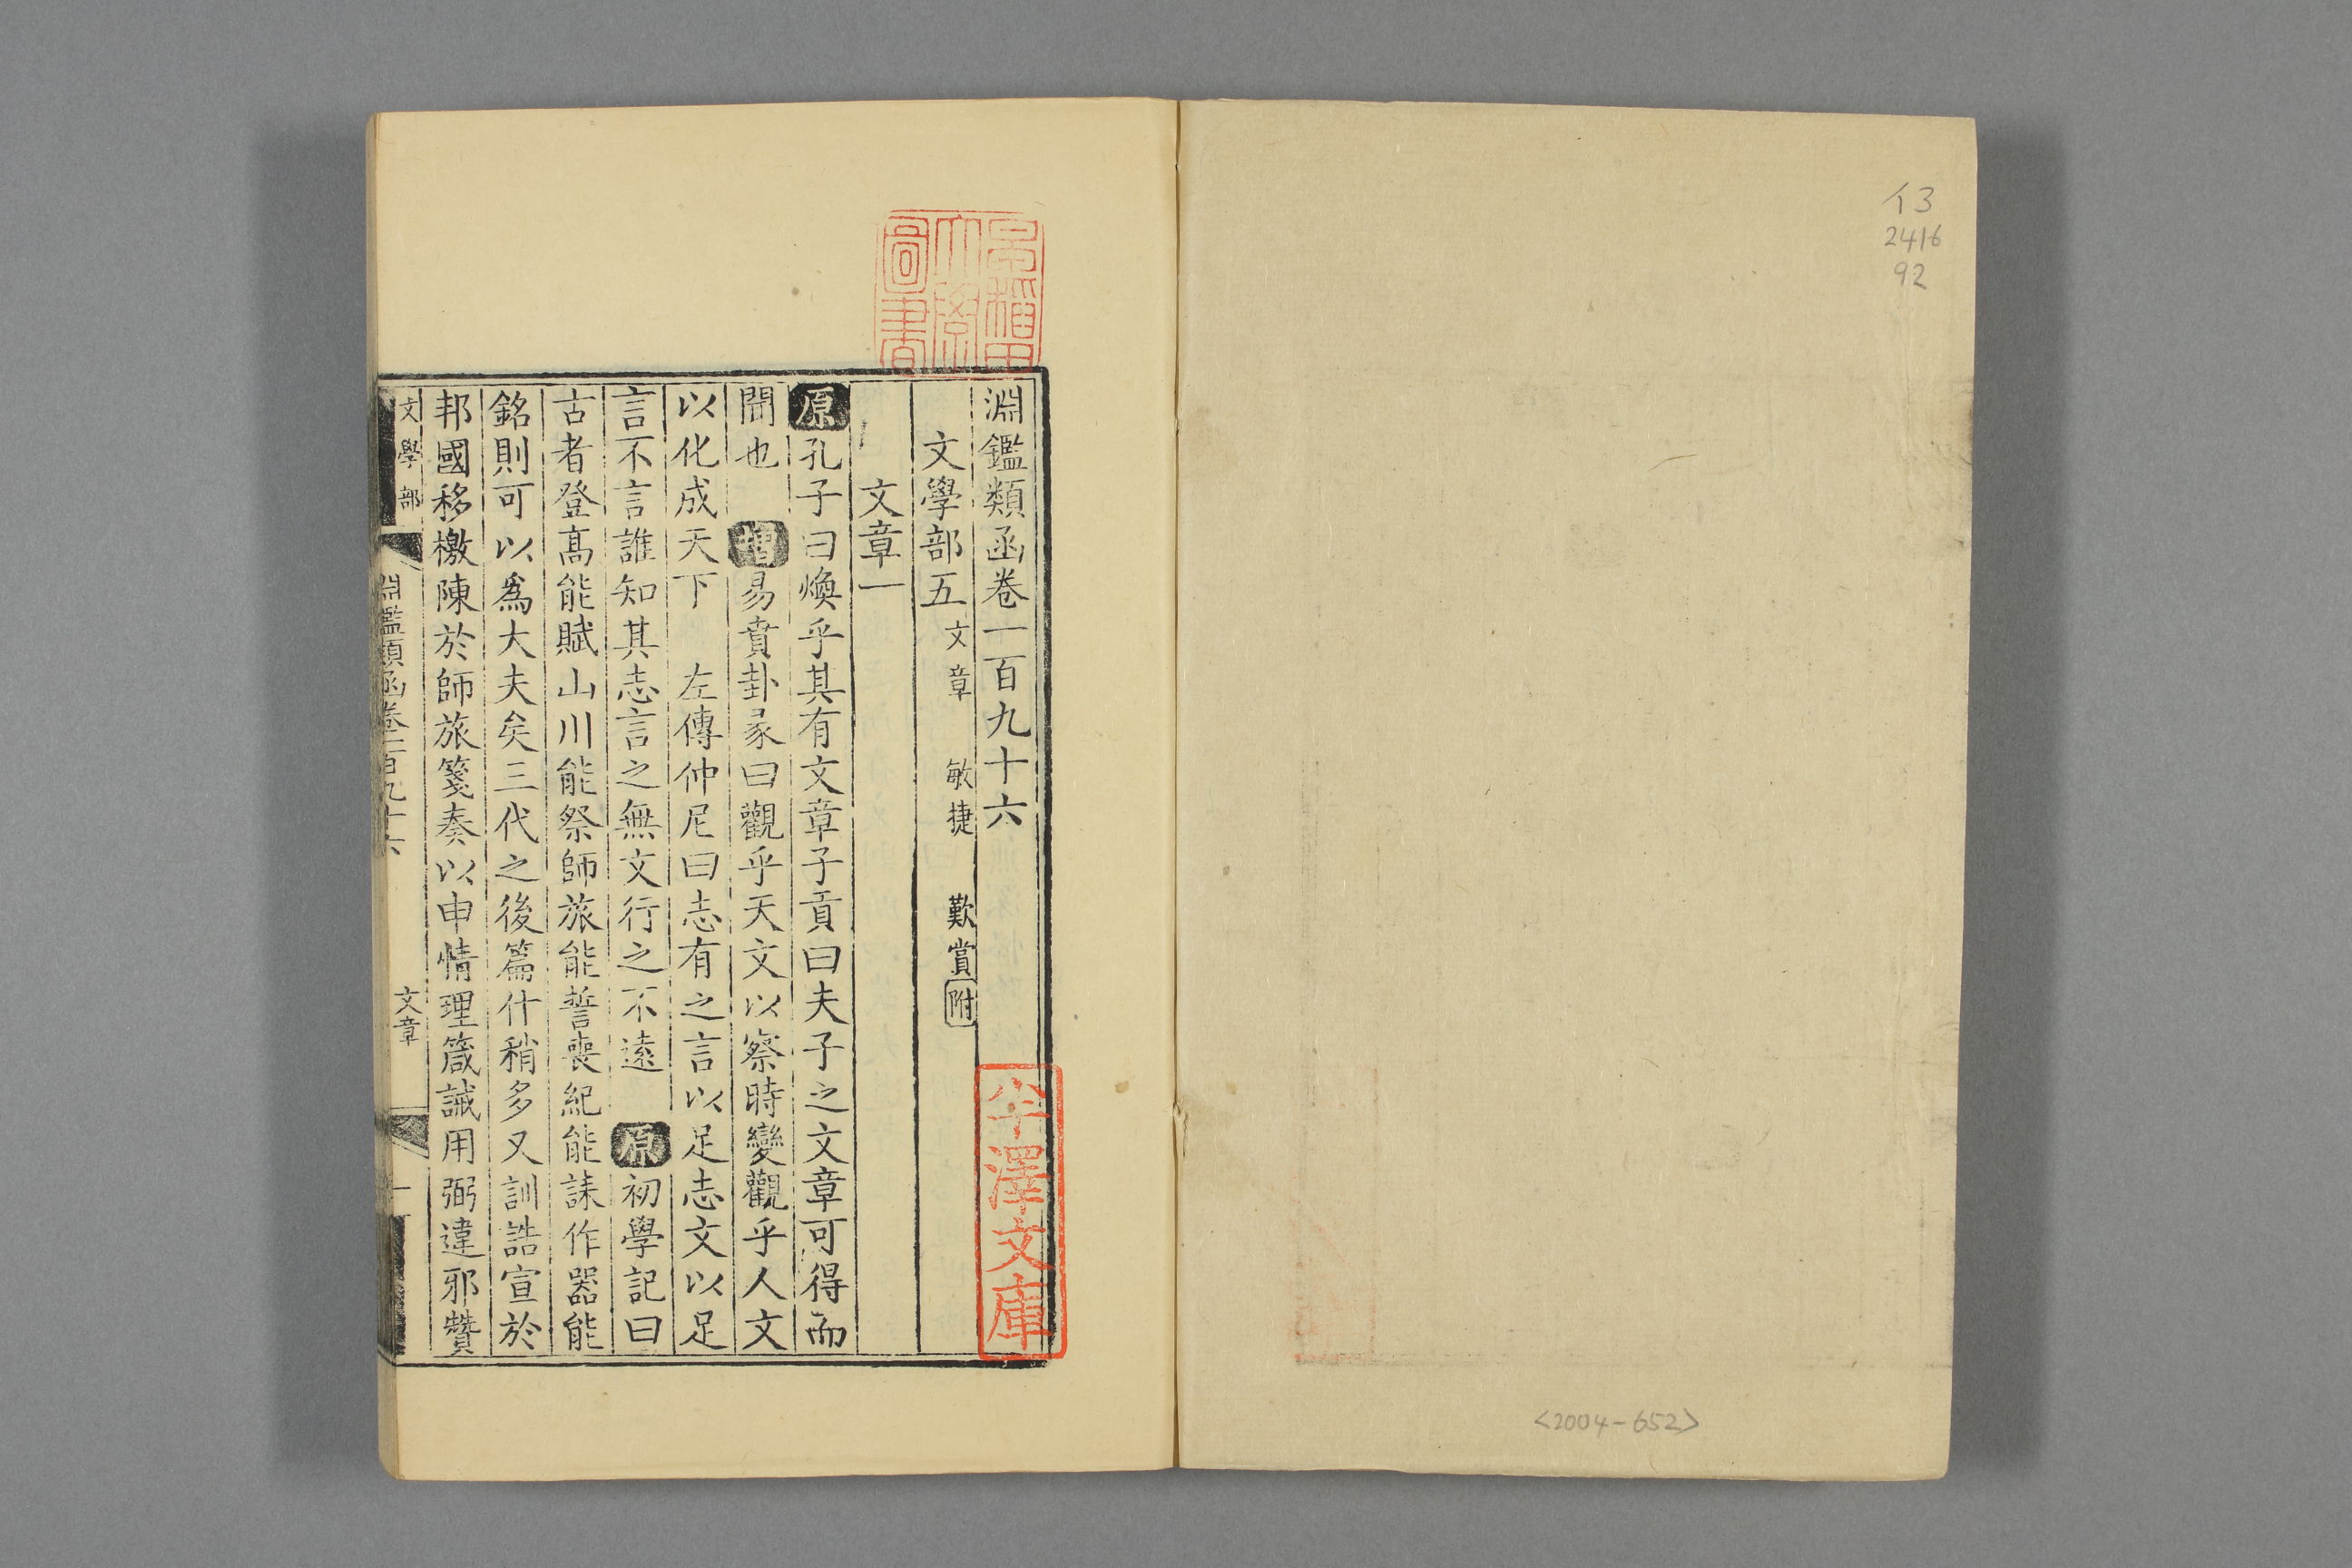 イ3
2416
92
<2004-652>
早稲田
大學
圖書
淵鑑類函卷一百九十六
文學部五 文章 敏捷 歎賞附
文章一
原孔子曰煥乎其有文章子貢曰夫子之文章可得而
聞也 增易賁卦彖曰觀乎天文以察時變觀乎人文
以化成天下 左傳仲尼曰志有之言以足志文以足
言不言誰知其志言之無文行之不遠 原初學記曰
古者登高能賦山川能祭師旅能誓喪紀能誄作器能
銘則可以爲大夫矣三代之後篇什稍多又訓誥宣於
邦國移檄陳於師旅箋奏以申情理箴誡用弼違邪贊
文學部 淵鑑類函卷一百九十六 文章 一
澤文庫